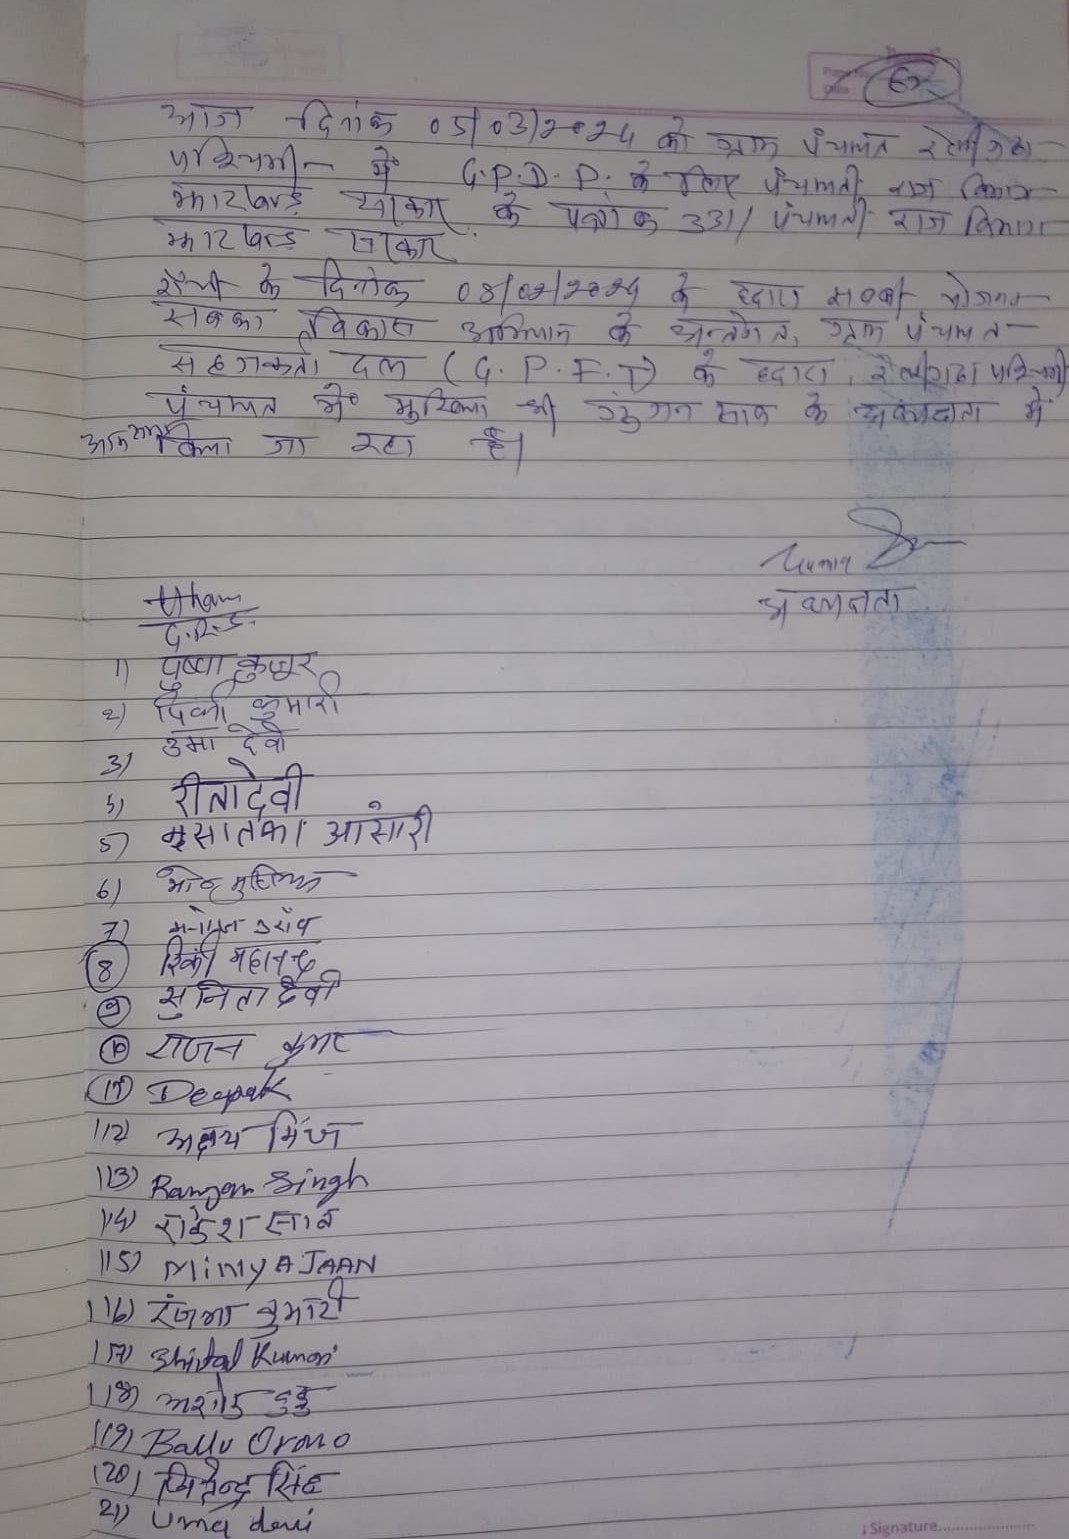 62
आज दिनांक 05/03/2024 को ग्राम पंचायत रेलीगढा
पश्चिमी में G.P.D.P. के लिए पंचायती राज विभाग
झारखण्ड सरकार के पत्रांक 331/ पंचायती राज विभाग
झारखण्ड सरकार
राँची के दिनांक 08/02/2024 के द्वारा सबकी योजना
सबका विकास अभियान के अन्तर्गत, ग्राम पंचायत
सहजकर्ता दल (G.P.F.T) के द्वारा, रेलीगढा पश्चिमी
पंचायत में मुखिया श्री साव के अध्यक्षता में
किया जा रहा है।
अध्यक्षता
1) पुष्पा कुजूर
2) पिंकी कुमारी
3) उमा देवी
4) रीता देवी
5) आंसारी
6)
7) मनोज उराँव
8) रिंकी
9) सुनिता देवी
10) राजन कुमार
11) Deepak
12) अक्षय मिंज
13) Ranjan Singh
14) राकेश साव
15) MINYA JAAN
16) रंजना कुमारी
17) Shital Kumari
18) अशोक टुडु
19) Ballu Orano
20) जितेन्द्र सिंह
21) Uma devi
Signature